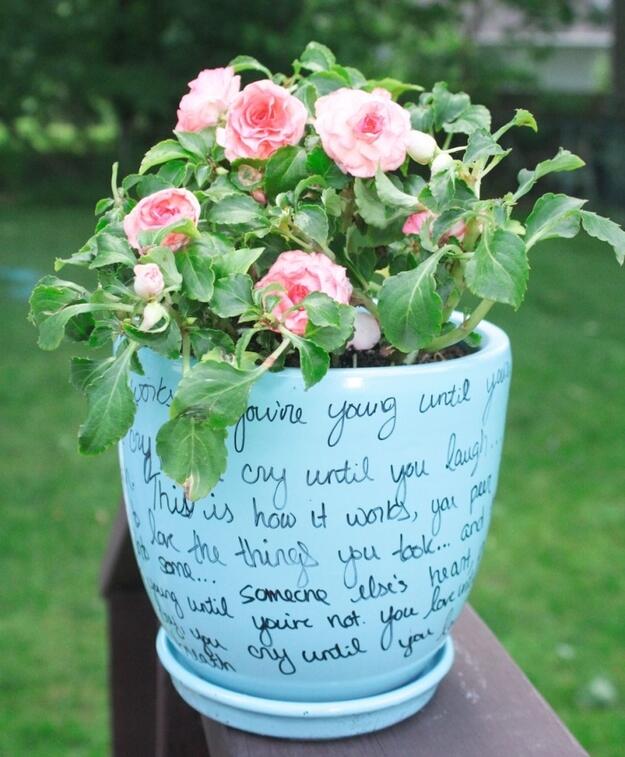 works you're young until you
cry cry until you laugh...
This is how it works, you peer
love the things you took... and
some... someone else's heart,
young until you're not. you love
you cry until you